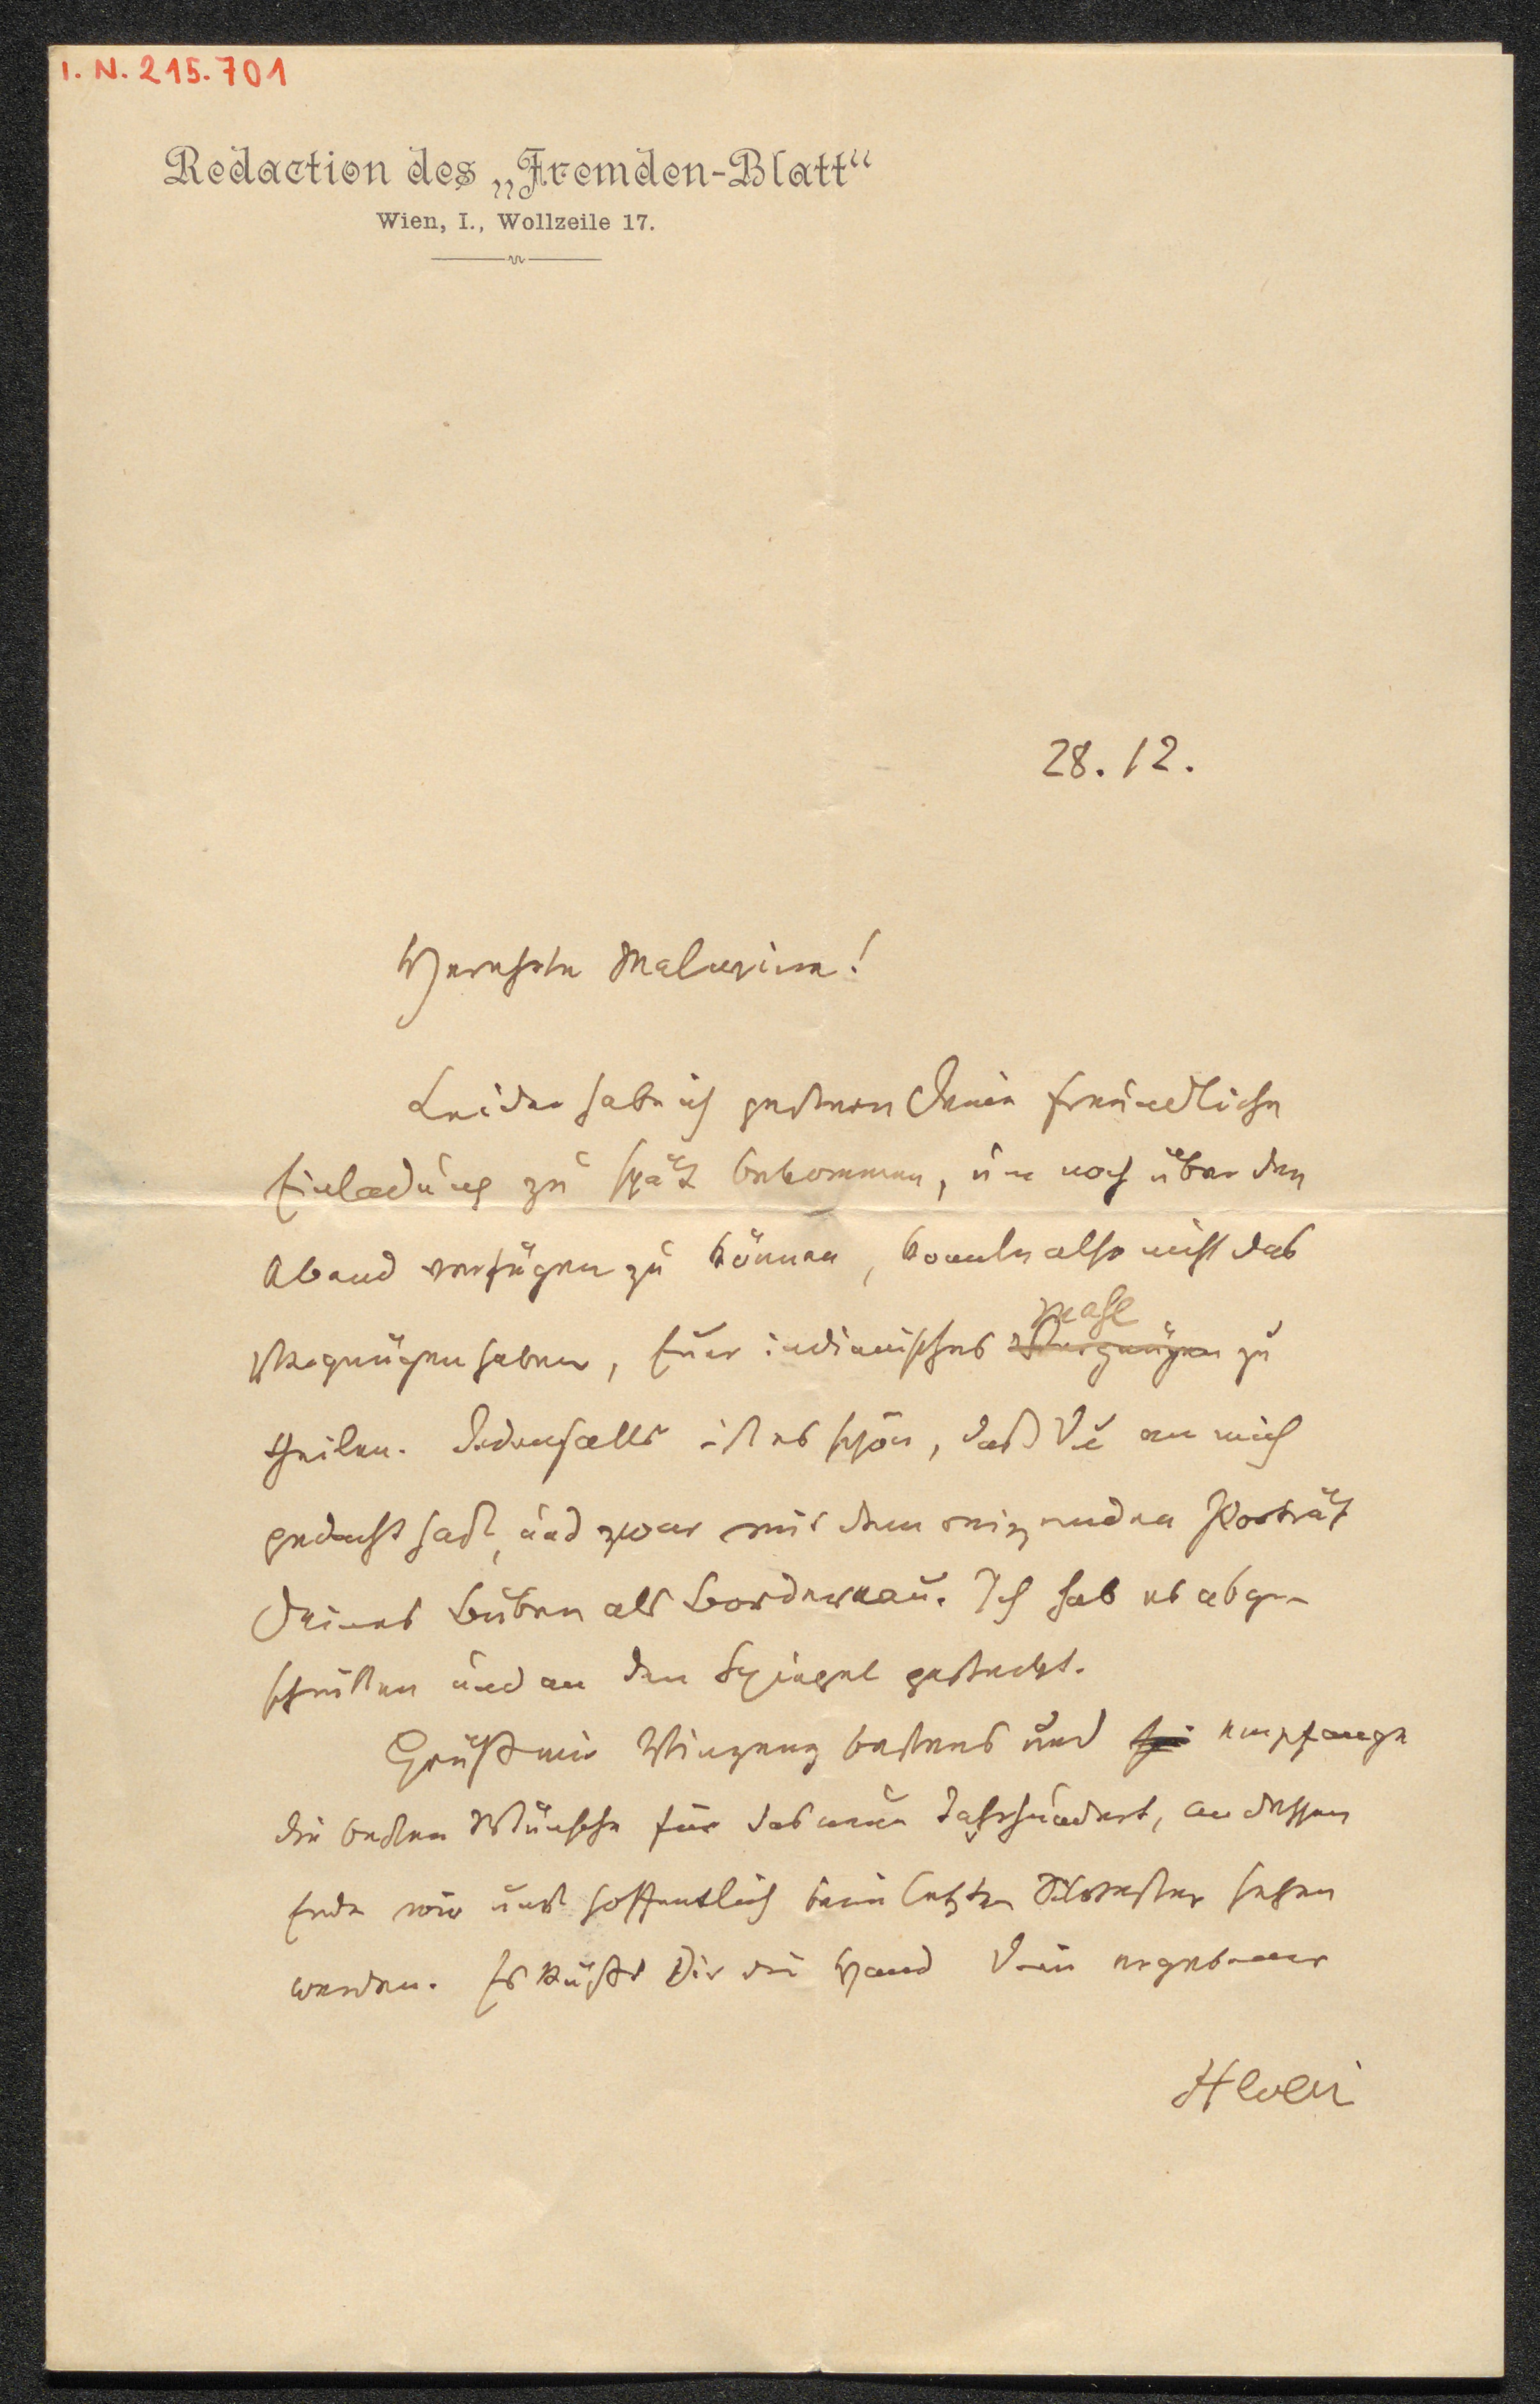 I. N. 215.701
Redaction des „Fremden-Blatt“
Wien, I., Wollzeile 17.
28. 12.
Verehrte Malwine!
Leider habe ich gestern Deine freundliche
Einladung zu spät bekommen, um noch über den
Abend verfügen zu können, konnte also nicht das
Vergnügen haben, Euer indianisches Mahl zu
theilen. Jedenfalls ist es schön, daß Du an mich
gedacht hast, und zwar mit dem reizenden Porträt
Deines Buben als Bordereau. Ich hab es abge-
schnitten und an den Spiegel gesteckt.
Grüß mir Vinzenz bestens und empfange
die besten Wünsche für das neue Jahrhundert, an dessen
Ende wir uns hoffentlich beim letzten Sylvester sehen
werden. Es küßt Dir die Hand Dein ergebener